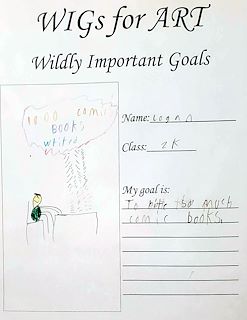 WIGs for ART
Wildly Important Goals
1000 comic
BOOKS
Name: Logan
Class: 2K
My goal is:
To much
comic books.